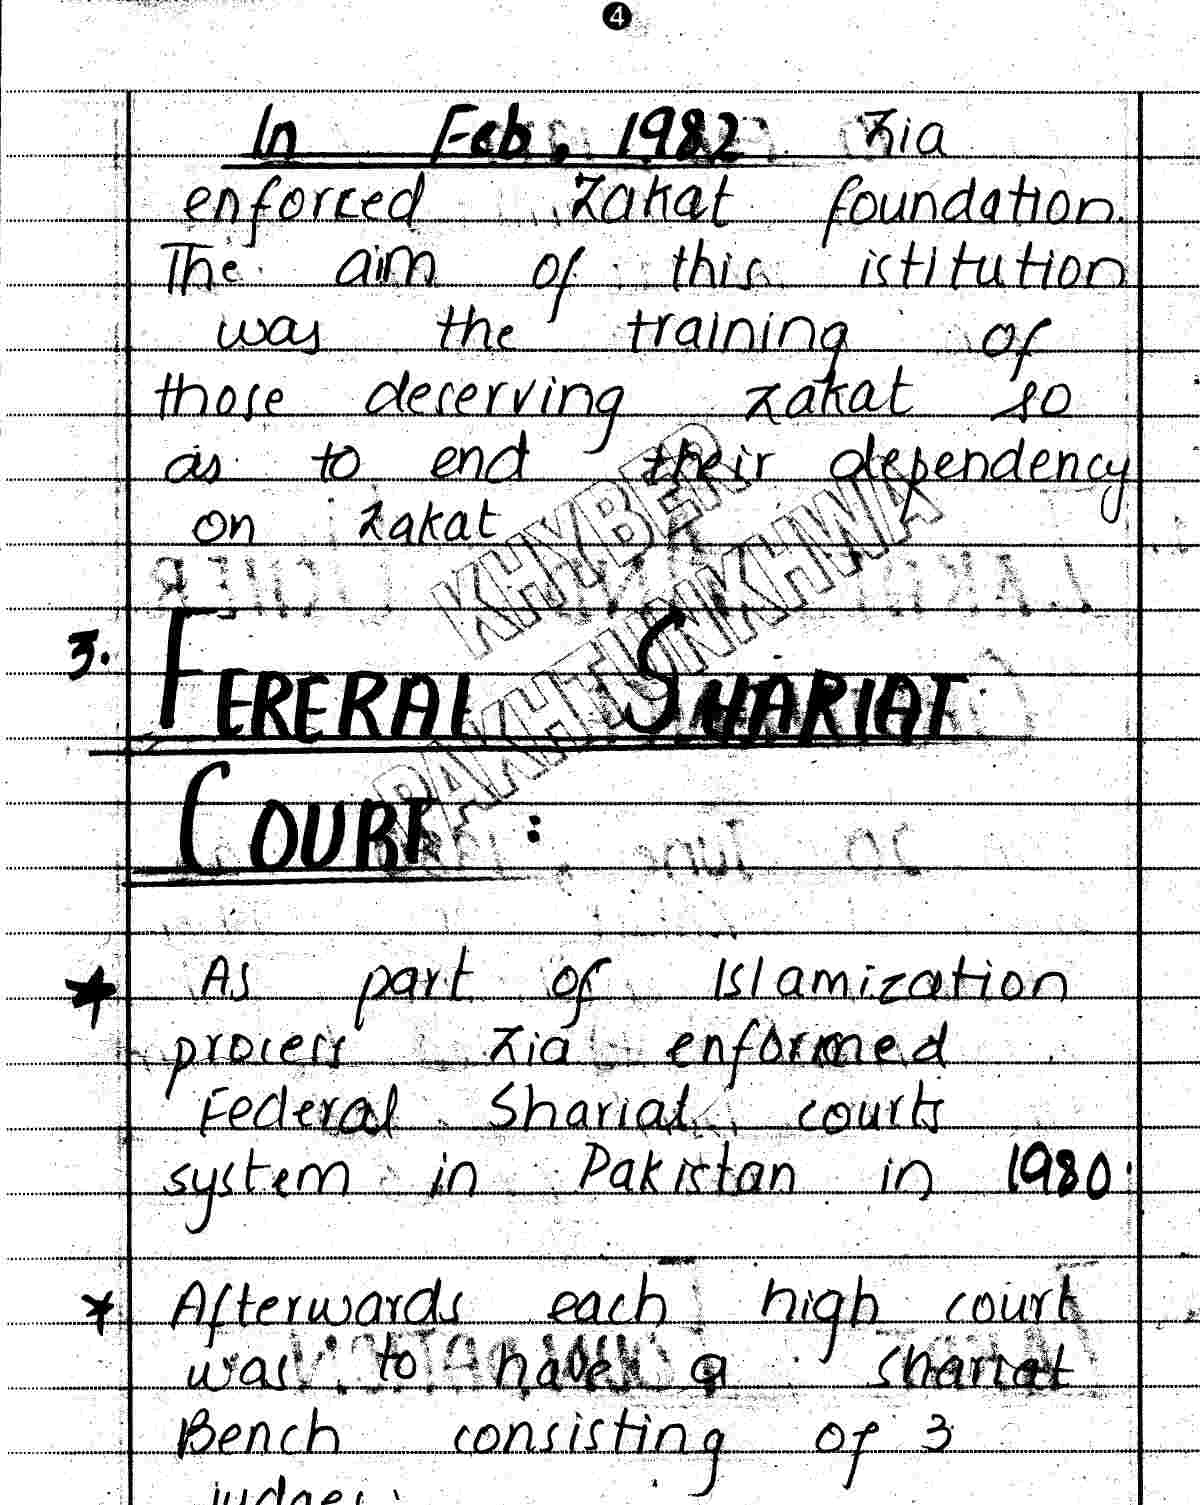 4
In Feb. 1982 Zia
enforced Zakat foundation.
The aim of this istitution
was the training of
those deserving zakat so
as to end their dependency
on zakat
KHYBER
PAKHTUNKHWA
3. FERERAL SHARIAT
COURT :
* As part of Islamization
process Zia enformed
Federal Shariat courts
system in Pakistan in 1980.
* Afterwards each high court
was to have a shariat
Bench consisting of 3
judges.